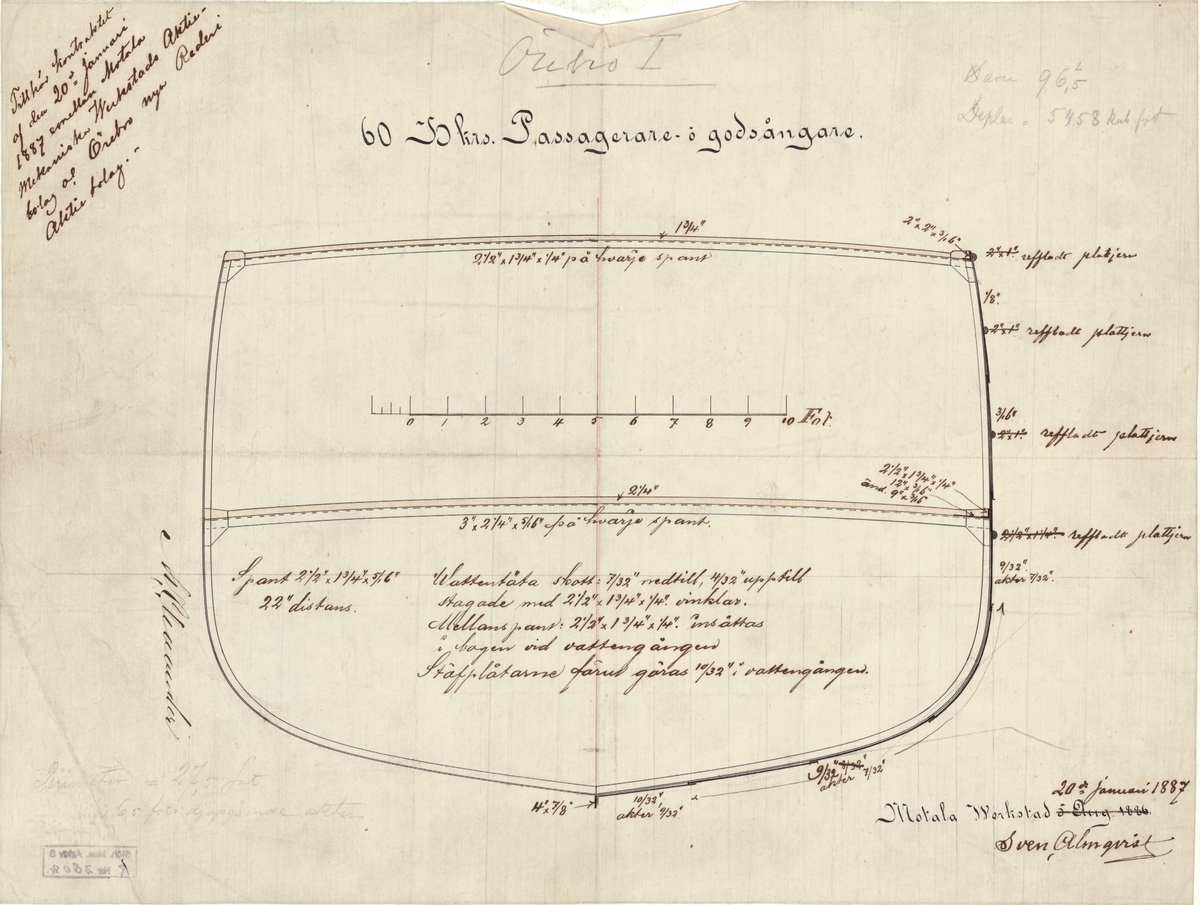 Tillhör kontraktet
af den 20de januari
1887 emellan Motala
Mekaniska Werkstads Aktie-
bolag och Örebro nya Rederi
Aktie bolag.-
Örebro I
96,5
Deplac = 5458 kub fot
60 Hkrs. Passagerare- ö godsångare.
1 3/4"
2" x 2" x 3/16"
2 1/2" x 1 3/4" x 1/4" på hvarje spant
2" x 1" reffladt plattjern
1/8".
2" x 1" reffladt plattjern
0 1 2 3 4 5 6 7 8 9 10 Fot.
3/16"
2" x 1" reffladt plattjern
2 1/2" x 1 3/4" x 1/4"
12" x 3/16"
änd. 9" x 3/16"
2 1/4"
3" x 2 1/4" x 5/16" på hvarje spant.
2 1/2" x 1 1/4" reffladt plattjern
9/32"
akter 7/32".
Spant 2 1/2" x 1 3/4" x 5/16"
22" distans.
Wattentäta skott: 7/32" nedtill, 4/32" upptill
stagade med 2 1/2" x 1 3/4" x 1/4". vinklar.
Mellanspant: 2 1/2" x 1 3/4" x 1/4". insättas
i bogen vid vattengången
Stäfplåtarne förut göras 10/32" i vattengången.
9/32" 8/32"
akter 7/32"
4" x 7/8"
10/32"
akter 9/32"
Perimeter 27,5 fot
djupgående akter
20de januari 1887
Motala Werkstad 5 Aug. 1886.
Sven Almqvist